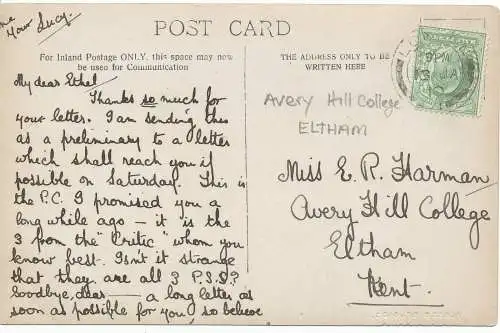 me
Your Lucy.
POST CARD
For Inland Postage ONLY, this space may now
be used for Communication
THE ADDRESS ONLY TO BE
WRITTEN HERE
My dear Ethel,
Thanks so much for
your letter. I am sending this
as a preliminary to a letter
which shall reach you if
possible on Saturday. This is
the P.C. I promised you a
long while ago — it is the
3 from the "Critic" whom you
know best. Isn't it strange
that they are all 3 P.S.S?
Goodbye, dear — a long letter as
soon as possible for you, so believe
Avery Hill College
ELTHAM
Miss E. R. Harman
Avery Hill College
Eltham
Kent.
9 PM